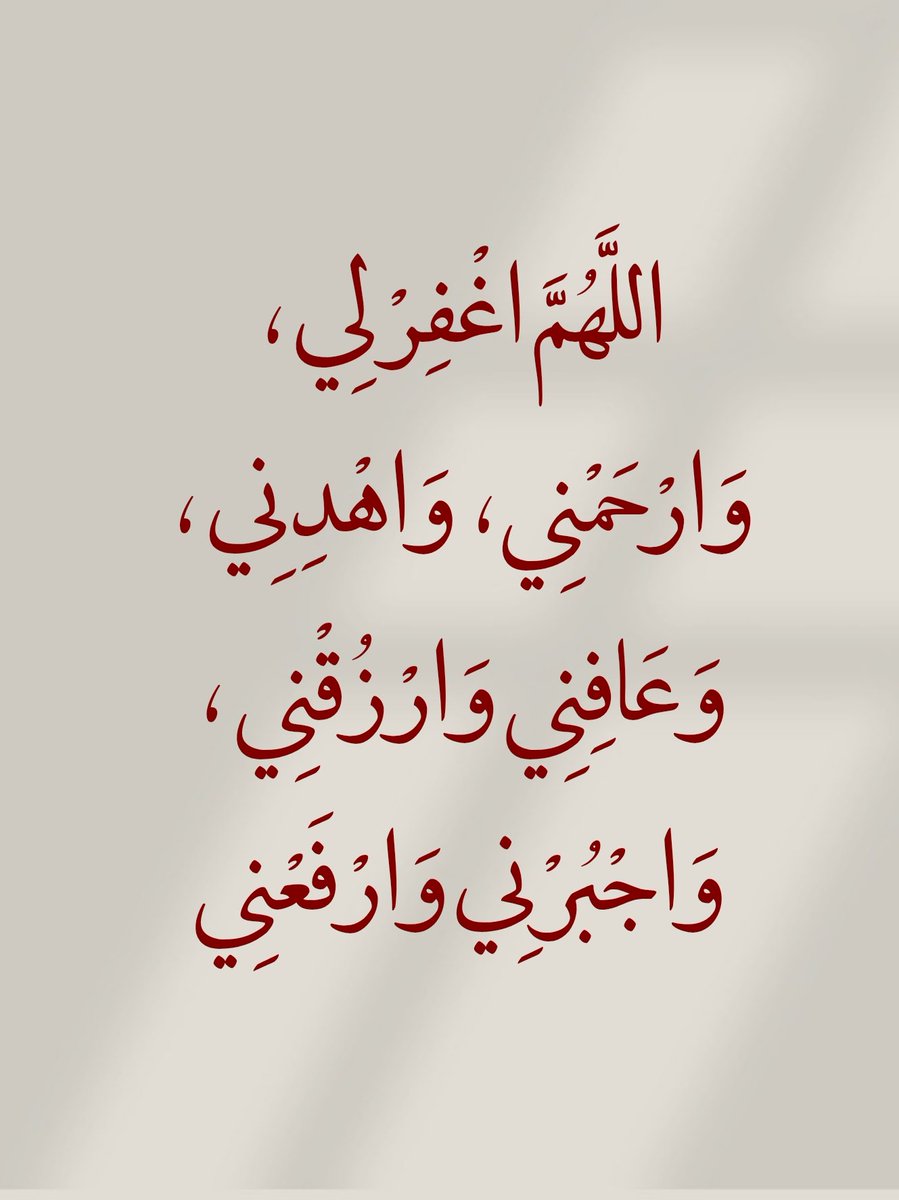 اللَّهُمَّ اغْفِرْ لِي،
وَارْحَمْنِي، وَاهْدِنِي،
وَعَافِنِي وَارْزُقْنِي،
وَاجْبُرْنِي وَارْفَعْنِي